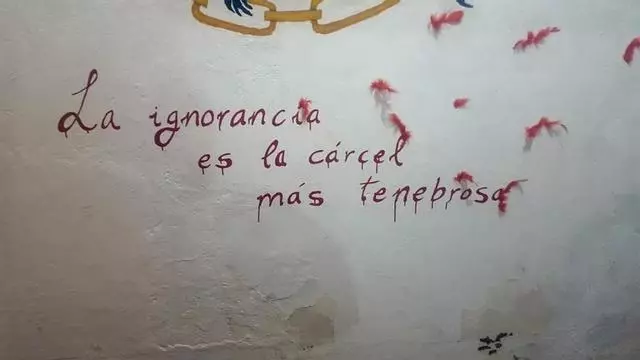 La ignorancia
es la cárcel
más tenebrosa